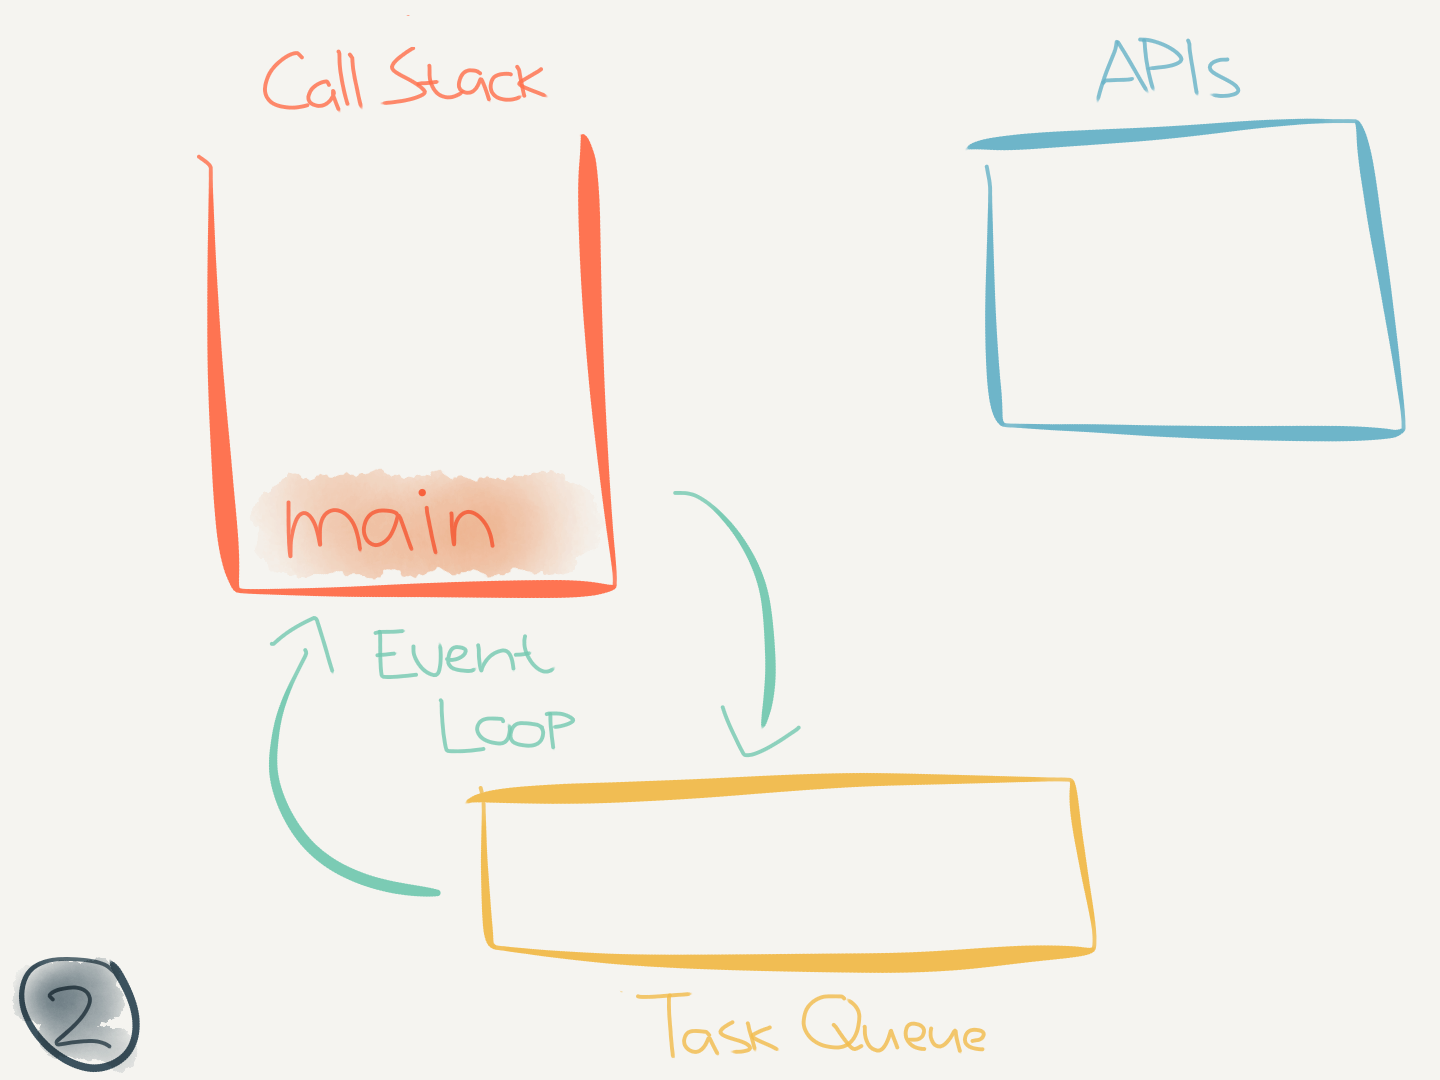 Call Stack
APIs
main
Event
Loop
Task Queue
2